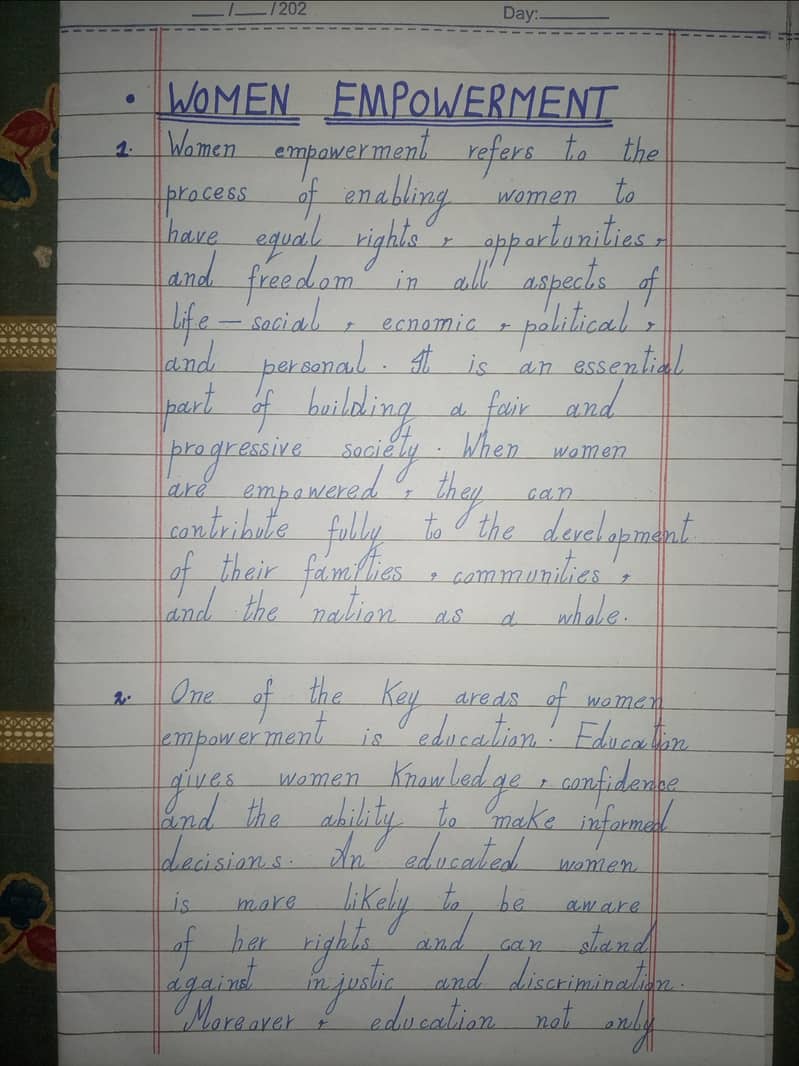 __/__/202 Day:______
• WOMEN EMPOWERMENT
1. Women empowerment refers to the
process of enabling women to
have equal rights , opportunities ,
and freedom in all aspects of
life — social , ecnomic , political ,
and personal . It is an essential
part of building a fair and
progressive society . When women
are empowered , they can
contribute fully to the development
of their families , communities ,
and the nation as a whole .
2. One of the Key areas of women
empowerment is education . Education
gives women Knowledge , confidence
and the ability to make informed
decisions . An educated women
is more likely to be aware
of her rights and can stand
against injustic and discrimination .
Moreover , education not only